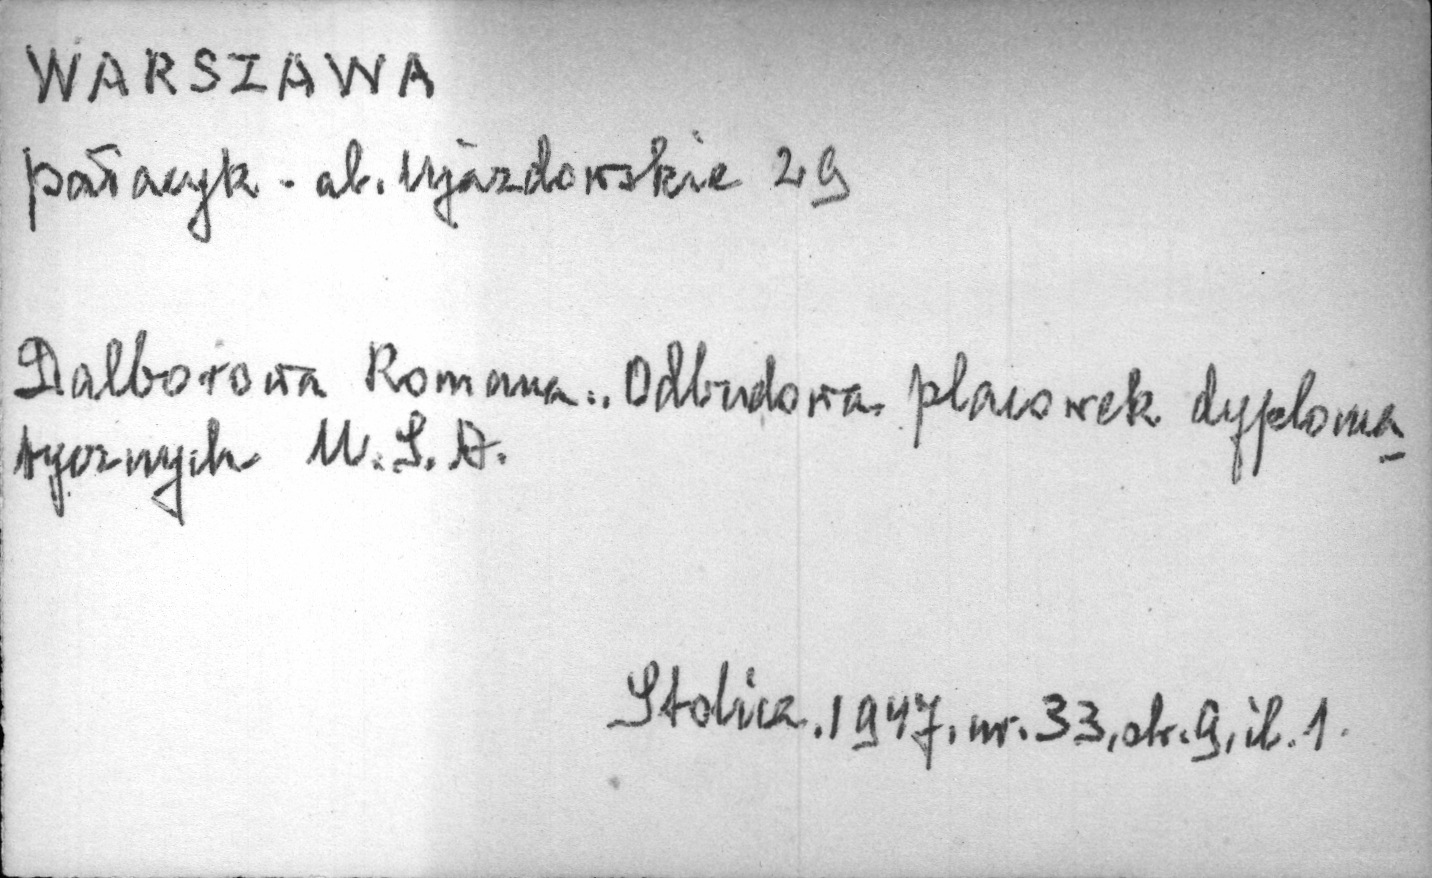 WARSZAWA
pałacyk - al. Ujazdowskie 29
Dalborowa Romana.. Odbudowa placowek dyploma
tycznych U.S.A.
Stolica. 1947. nr. 33, str. 9, il. 1.